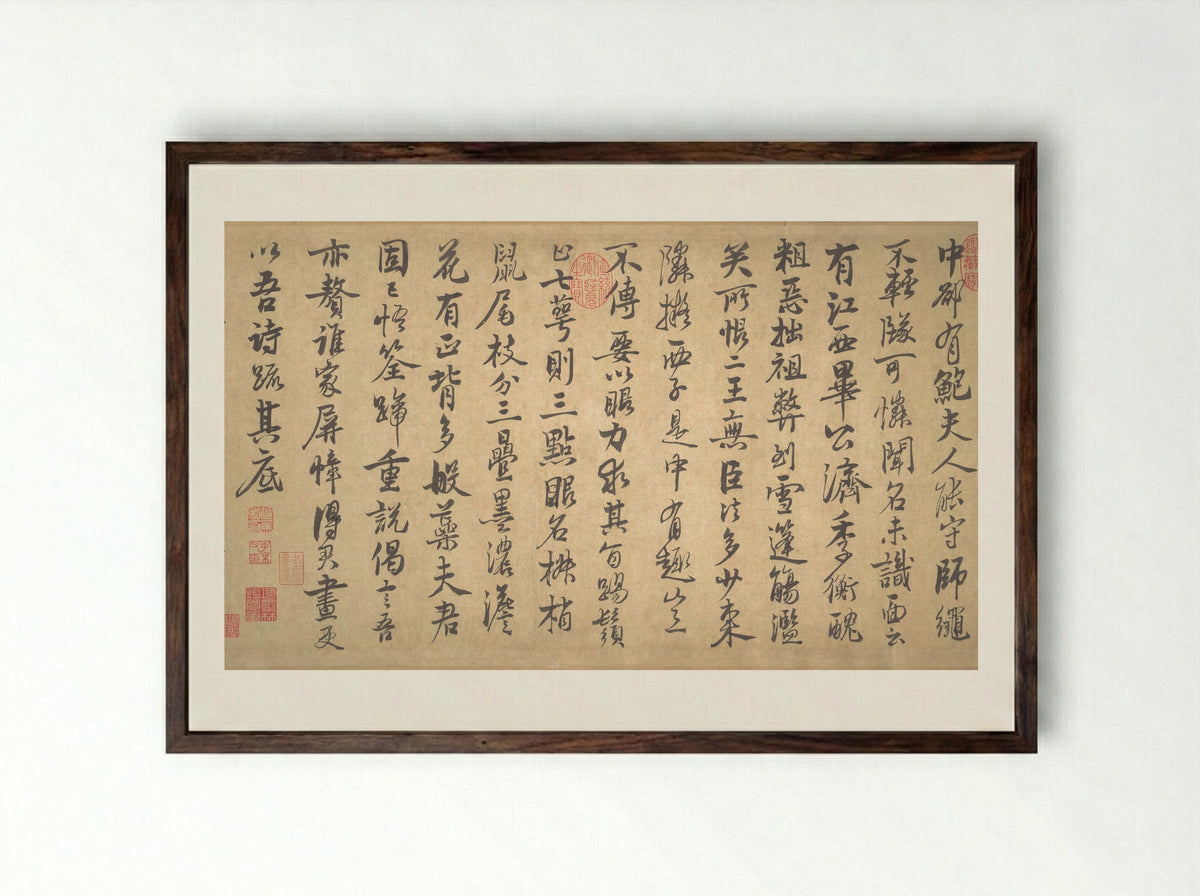 中郤有鮑夫人能守師繩
不輕墜可憐聞名未識面云
有江西畢公濟季衡醜
粗惡拙祖弊到雪蓬觴濫
矣所恨二王無臣法多少東
隣擬西子是中有趣豈
不傳要以眼力求其旨踢鬚
止七萼則三點眼名椒梢
鼠尾枝分三疊墨濃澹
花有正背多般蕊夫君
固已悟筌蹄重說偈言吾
亦贅誰家屏幛得君畫更
以吾詩疏其底